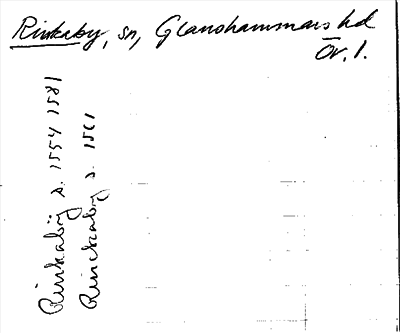 Rinkaby, sn, Glanshammars hd
Ör. l.
Rinkaby s. 1554 1581
Rinckaby s. 1561